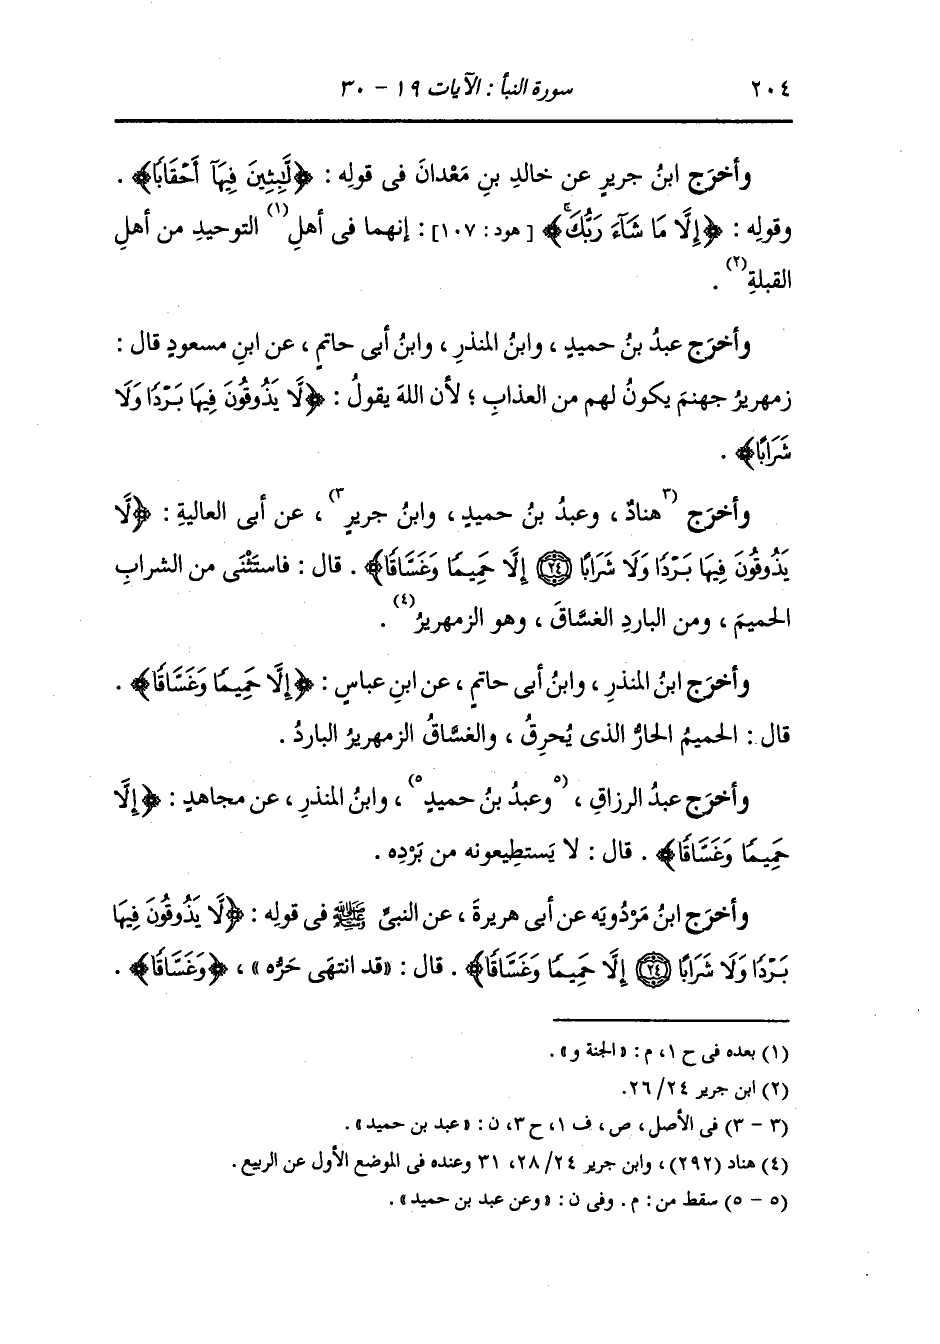 ٢٠٤ سورة النبأ : الآيات ١٩ - ٣٠
وأخرَج ابنُ جريرٍ عن خالدِ بنِ مَعْدانَ فى قولِه : ﴿لَّٰبِثِينَ فِيهَآ أَحْقَابًا﴾ .
وقولِه : ﴿إِلَّا مَا شَآءَ رَبُّكَۚ﴾ [هود: ١٠٧] : إنهما فى أهلِ(١) التوحيدِ من أهلِ
القبلةِ(٢) .
وأخرَج عبدُ بنُ حميدٍ ، وابنُ المنذرِ ، وابنُ أبى حاتمٍ ، عن ابنِ مسعودٍ قال :
زمهريرُ جهنمَ يكونُ لهم من العذابِ ؛ لأن اللهَ يقولُ : ﴿لَّا يَذُوقُونَ فِيهَا بَرْدًا وَلَا
شَرَابًا﴾ .
وأخرَج (٣هنادٌ ، وعبدُ بنُ حميدٍ ، وابنُ جريرٍ٣) ، عن أبى العاليةِ : ﴿لَّا
يَذُوقُونَ فِيهَا بَرْدًا وَلَا شَرَابًا ٢٤ إِلَّا حَمِيمًا وَغَسَّاقًا﴾ . قال : فاستَثْنَى من الشرابِ
الحميمَ ، ومن الباردِ الغسَّاقَ ، وهو الزمهريرُ(٤) .
وأخرَج ابنُ المنذرِ ، وابنُ أبى حاتمٍ ، عن ابنِ عباسٍ : ﴿إِلَّا حَمِيمًا وَغَسَّاقًا﴾ .
قال : الحميمُ الحارُّ الذى يُحرِقُ ، والغسَّاقُ الزمهريرُ الباردُ .
وأخرَج عبدُ الرزاقِ ، (٥وعبدُ بنُ حميدٍ٥) ، وابنُ المنذرِ ، عن مجاهدٍ : ﴿إِلَّا
حَمِيمًا وَغَسَّاقًا﴾ . قال : لا يَستطِيعونه من بَرْدِه .
وأخرَج ابنُ مَرْدُويَه عن أبى هريرةَ ، عن النبىِّ ﷺ فى قولِه : ﴿لَّا يَذُوقُونَ فِيهَا
بَرْدًا وَلَا شَرَابًا ٢٤ إِلَّا حَمِيمًا وَغَسَّاقًا﴾ . قال : «قد انتهَى حَرُّه» ، ﴿وَغَسَّاقًا﴾ .
(١) بعده فى ح ١، م : «الجنة و» .
(٢) ابن جرير ٢٤/ ٢٦.
(٣ - ٣) فى الأصل ، ص ، ف ١، ح ٣، ن : «عبد بن حميد» .
(٤) هناد (٢٩٢) ، وابن جرير ٢٤/ ٢٨، ٣١ وعنده فى الموضع الأول عن الربيع .
(٥ - ٥) سقط من : م . وفى ن : «وعن عبد بن حميد» .